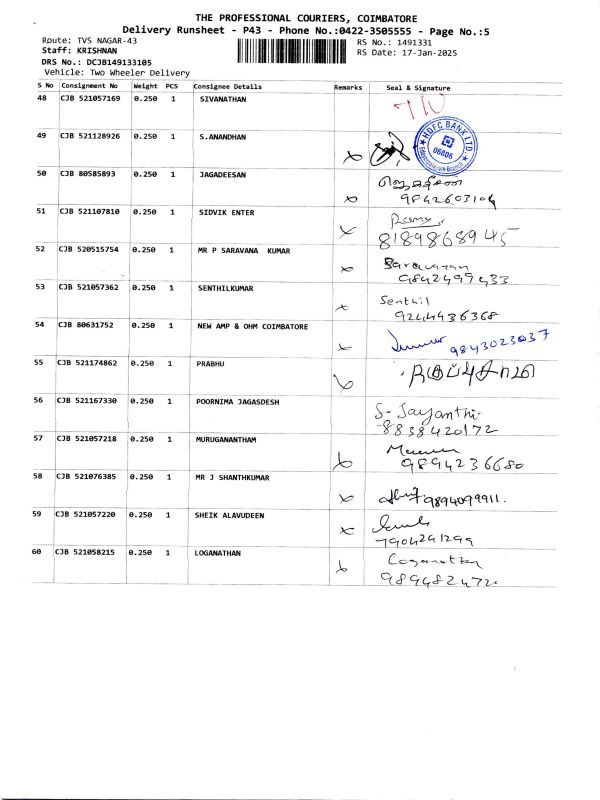 THE PROFESSIONAL COURIERS, COIMBATORE
Delivery Runsheet - P43 - Phone No.:0422-3505555 - Page No.:5
Route: TVS NAGAR-43
RS No.: 1491331
Staff: KRISHNAN
RS Date: 17-Jan-2025
DRS No.: DCJB149133105
Vehicle: Two Wheeler Delivery
S No Consignment No Weight PCS Consignee Details Remarks Seal & Signature
48 CJB 521057169 0.250 1 SIVANATHAN
49 CJB 521128926 0.250 1 S.ANANDHAN
HDFC BANK LTD.
06606
50 CJB 80585893 0.250 1 JAGADEESAN
9842603104
51 CJB 521107810 0.250 1 SIDVIK ENTER
8189868945
52 CJB 520515754 0.250 1 MR P SARAVANA KUMAR
Saravanan
9842499433
53 CJB 521057362 0.250 1 SENTHILKUMAR
Senthil
9244936368
54 CJB 80631752 0.250 1 NEW AMP & OHM COIMBATORE
9843023037
55 CJB 521174862 0.250 1 PRABHU
56 CJB 521167330 0.250 1 POORNIMA JAGASDESH
S- Jayanthi
8838420172
57 CJB 521057218 0.250 1 MURUGANANTHAM
9894236680
58 CJB 521076385 0.250 1 MR J SHANTHKUMAR
9894099911.
59 CJB 521057220 0.250 1 SHEIK ALAVUDEEN
7904291299
60 CJB 521058215 0.250 1 LOGANATHAN
Loganathan
989482472